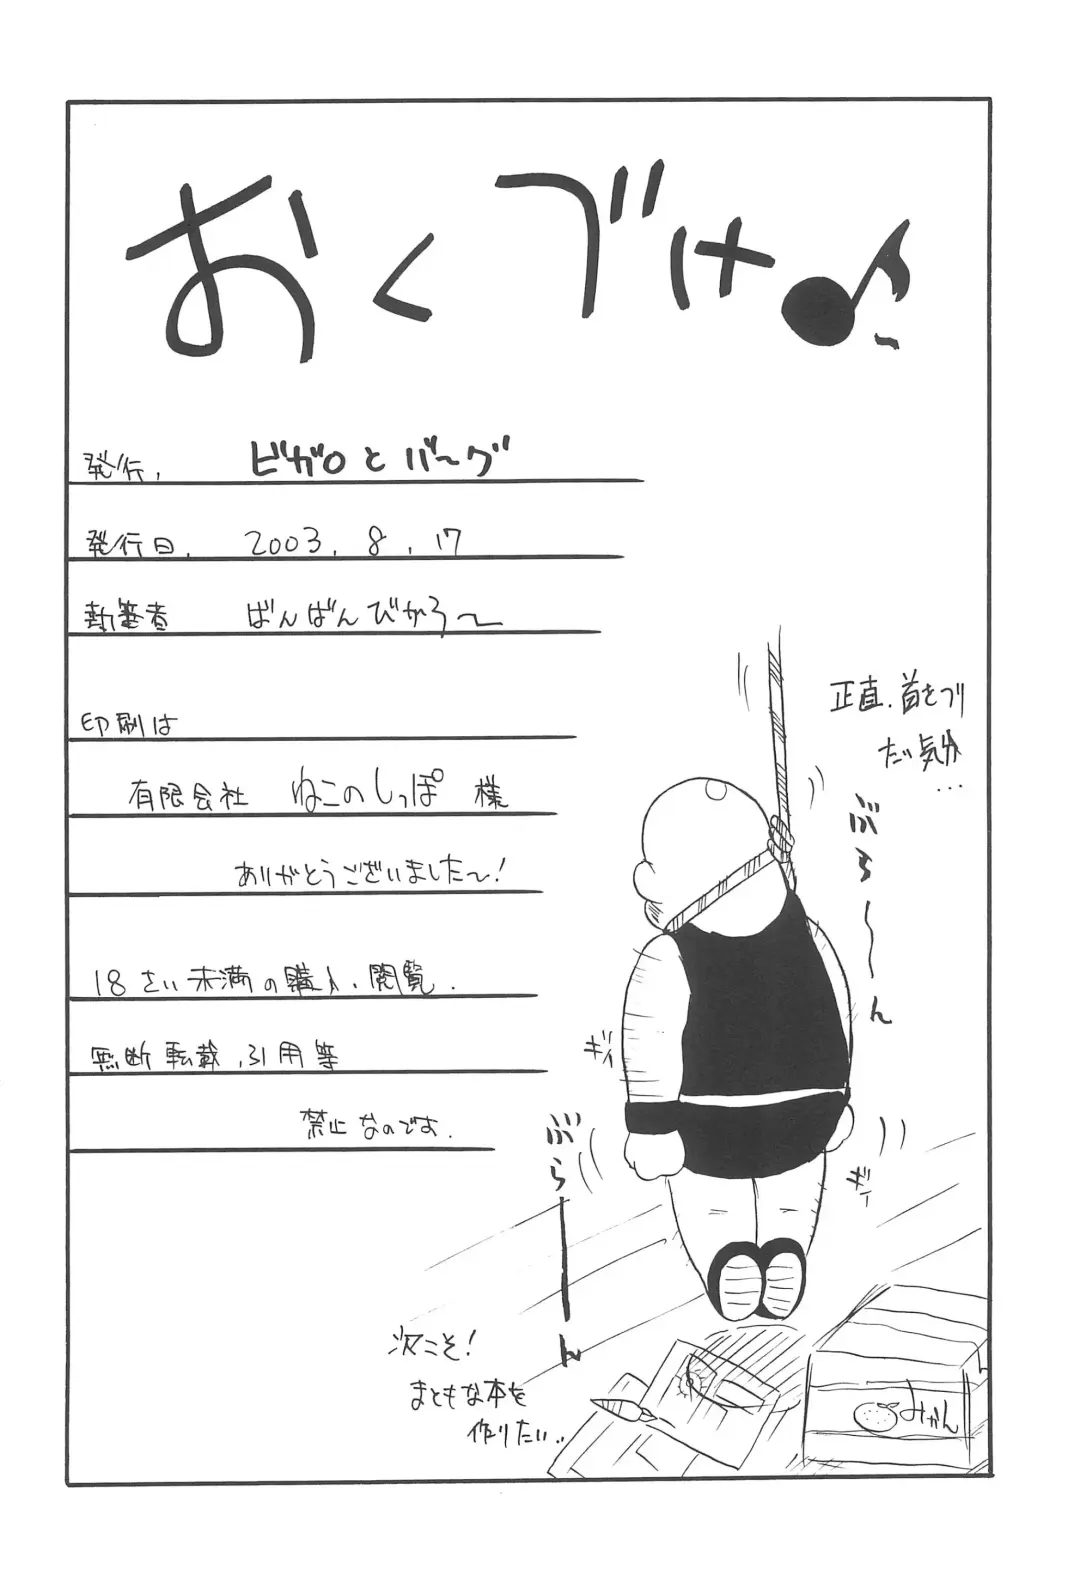 おくづけ♪
発行, ビガロとバーグ
発行日, 2003.8.17
執筆者 ばんばんびがろ～
印刷は
有限会社 ねこのしっぽ 様
ありがとうございました～!
18さい未満の購入、閲覧.
無断転載、引用等
禁止なのです.
正直.首をつり
たい気分
...
ぶら～～ん
ギィ
ぶらーーん
ギィー
次こそ!
まともな本を
作りたい..
みかん